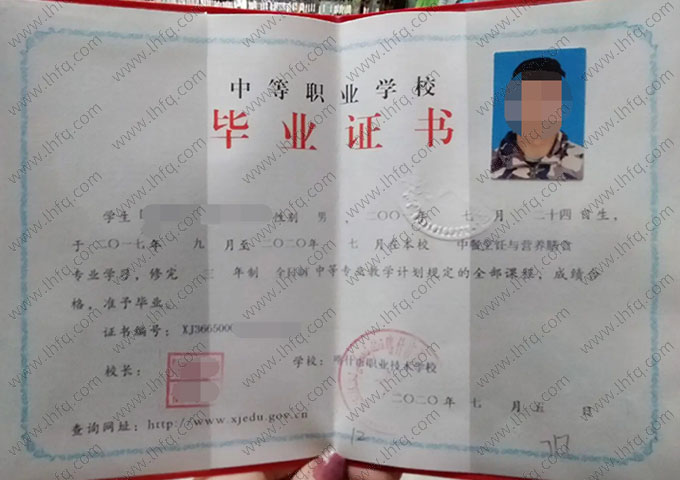 中等职业学校
毕业证书
学生 性别 男，二〇〇一年 七月 二十四日生，
于二〇一七年 九月至二〇二〇年 七月在本校 中餐烹饪与营养膳食
专业学习，修完 三 年制 全日制中等专业教学计划规定的全部课程，成绩合
格，准予毕业。
证书编号：XJ3665000
校长： 学校： 职业技术学校
二〇二〇年 七月 五日
查询网址：http://www.xjedu.gov.cn
www.lhfq.com